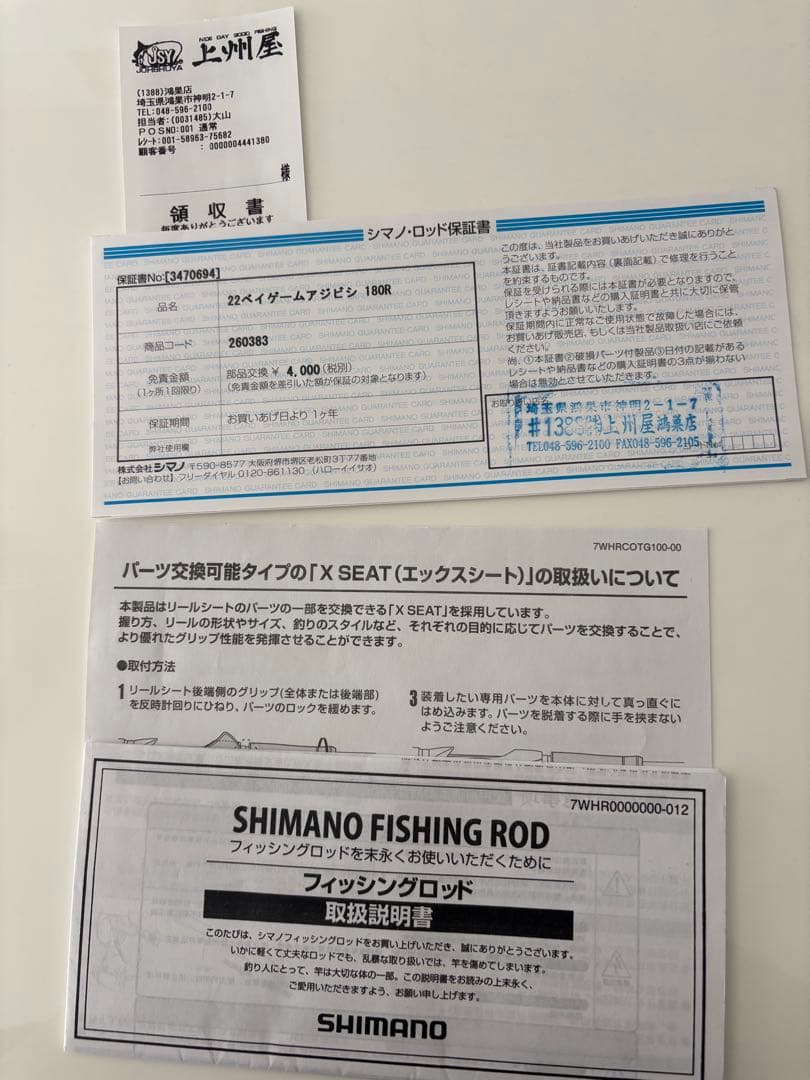 NICE DAY 3000 FISHING
JSY
JOHSHUYA
上州屋
(1388)鴻巣店
埼玉県鴻巣市神明2-1-7
TEL:048-596-2100
担当者:(0031485)大山
POSNO:001 通常
ﾚｼｰﾄ:001-58963-75682
顧客番号 : 0000004441380
様
領収書
毎度ありがとうございます
シマノ・ロッド保証書
保証書No:[3470694]
品名
22ベイゲームアジビシ 180R
商品コード
260383
免責金額
(1ヶ所1回限り)
部品交換 ¥ 4,000 (税別)
(免責金額を差引いた額が保証の対象となります)
保証期間
お買いあげ日より 1ヶ年
弊社使用欄
株式会社シマノ 〒590-8577 大阪府堺市堺区老松町3丁77番地
【お問い合わせ】フリーダイヤル 0120-861130 (ハローイイサオ)
この度は、当社製品をお買いあげいただき誠にありがと
うございます。
本証書は、証書記載内容(裏面記載)で修理を行うこと
を約束するものです。
保証を受けられる際には本証書が必要となりますので、
レシートや納品書などの購入証明書と共に大切に保管
頂きますようお願いします。
保証期間内に正常なご使用状態で故障した場合には、
お買いあげ販売店、もしくは当社製品取扱い店にご依頼
ください。
尚、①本証書②破損パーツ付製品③日付の記載がある
レシートや納品書などの購入証明書の3点が揃わない
場合は無効とさせていただきます。
お取り扱い店名
埼玉県鴻巣市神明2-1-7
#1388 ㈱上州屋鴻巣店
TEL048-596-2100 FAX048-596-2105
SHIMANO GUARANTEE CARD
7WHRCOTG100-00
パーツ交換可能タイプの「X SEAT(エックスシート)」の取扱いについて
本製品はリールシートのパーツの一部を交換できる「X SEAT」を採用しています。
握り方、リールの形状やサイズ、釣りのスタイルなど、それぞれの目的に応じてパーツを交換することで、
より優れたグリップ性能を発揮させることができます。
●取付方法
1 リールシート後端側のグリップ(全体または後端部)
を反時計回りにひねり、パーツのロックを緩めます。
3 装着したい専用パーツを本体に対して真っ直ぐに
はめ込みます。パーツを脱着する際に手を挟まない
ようご注意ください。
7WHR0000000-012
SHIMANO FISHING ROD
フィッシングロッドを末永くお使いいただくために
フィッシングロッド
取扱説明書
このたびは、シマノフィッシングロッドをお買い上げいただき、誠にありがとうございます。
いかに軽くて丈夫なロッドでも、乱暴な取り扱いでは、竿を傷めてしまいます。
釣り人にとって、竿は大切な体の一部。この説明書をお読みの上末永く、
ご愛用いただきますよう、お願い申し上げます。
SHIMANO